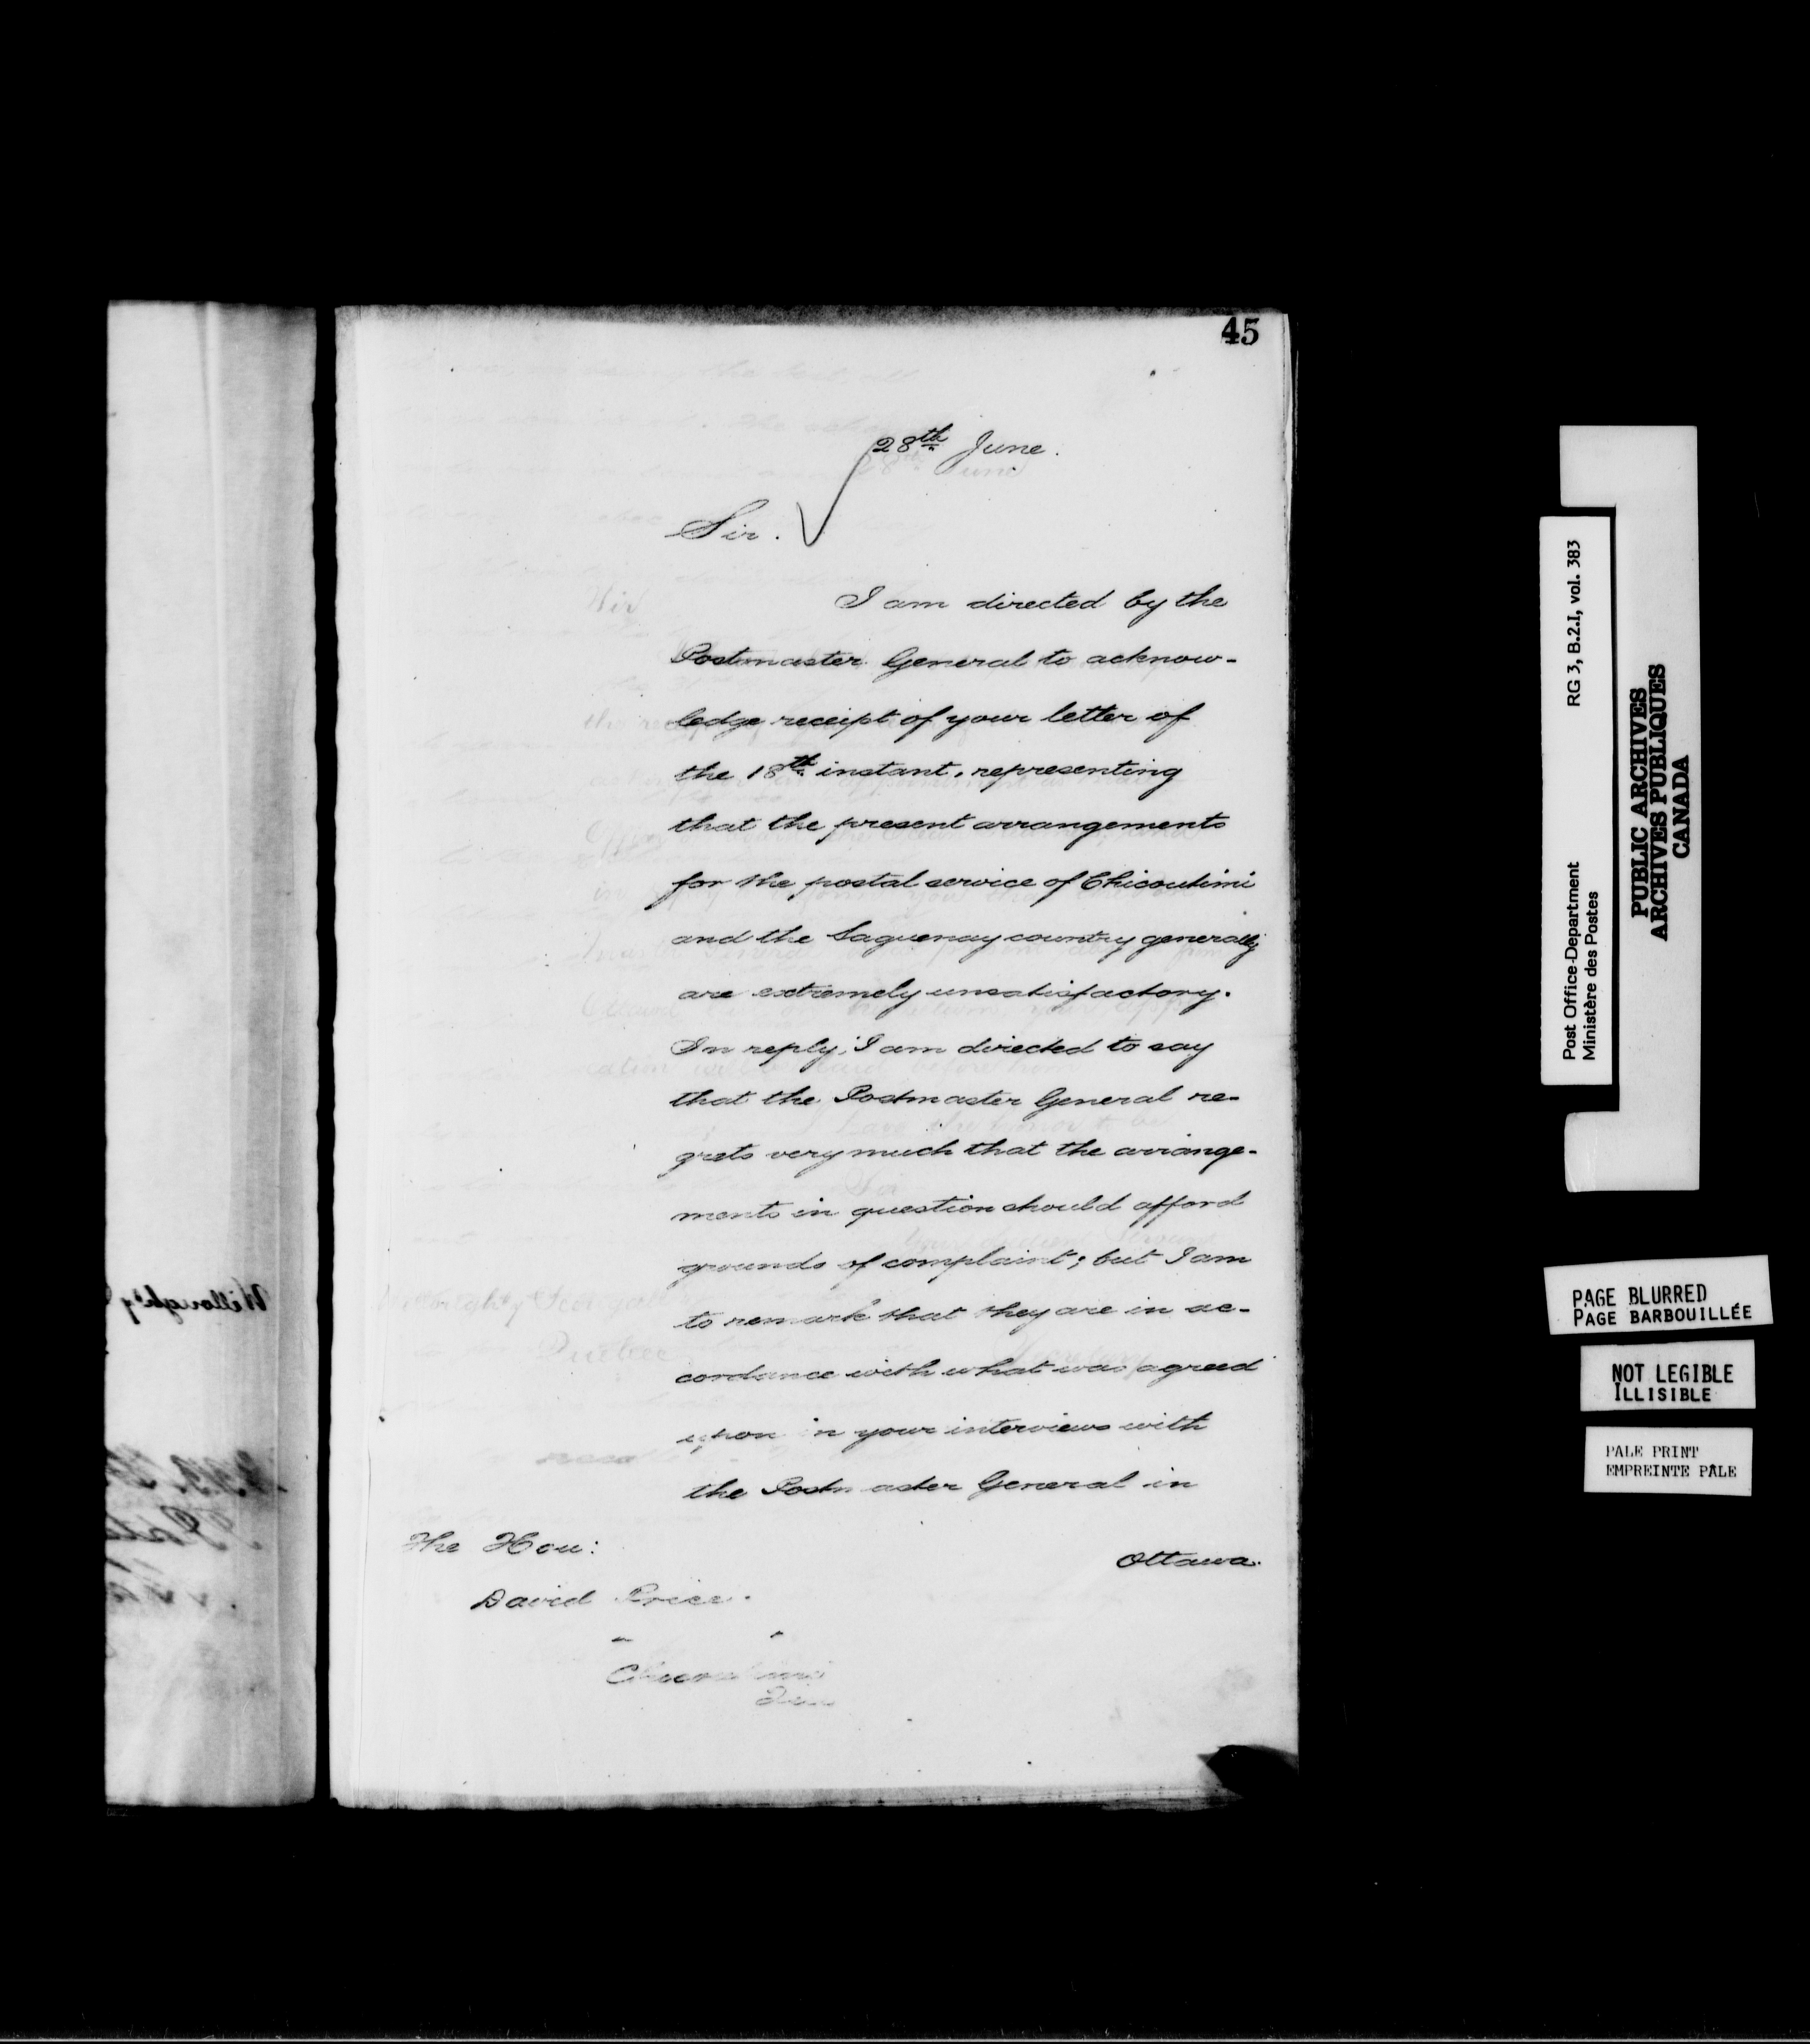 45
28th June.
Sir.
I am directed by the
Postmaster General to acknow-
ledge receipt of your letter of
the 18th instant, representing
that the present arrangements
for the postal service of Chicoutimi
and the Saguenay country generally
are extremely unsatisfactory.
In reply, I am directed to say
that the Postmaster General re-
grets very much that the arrange-
ments in question should afford
grounds of complaint; but I am
to remark that they are in ac-
cordance with what was agreed
upon in your interviews with
the Postmaster General in
Ottawa.
The Hon:
David Price.
Chicoutimi
Willoughby
Post Office Department
Ministère des Postes
RG 3, B.2.I, vol. 383
PUBLIC ARCHIVES
ARCHIVES PUBLIQUES
CANADA
PAGE BLURRED
PAGE BARBOUILLÉE
NOT LEGIBLE
ILLISIBLE
PALE PRINT
EMPREINTE PÂLE